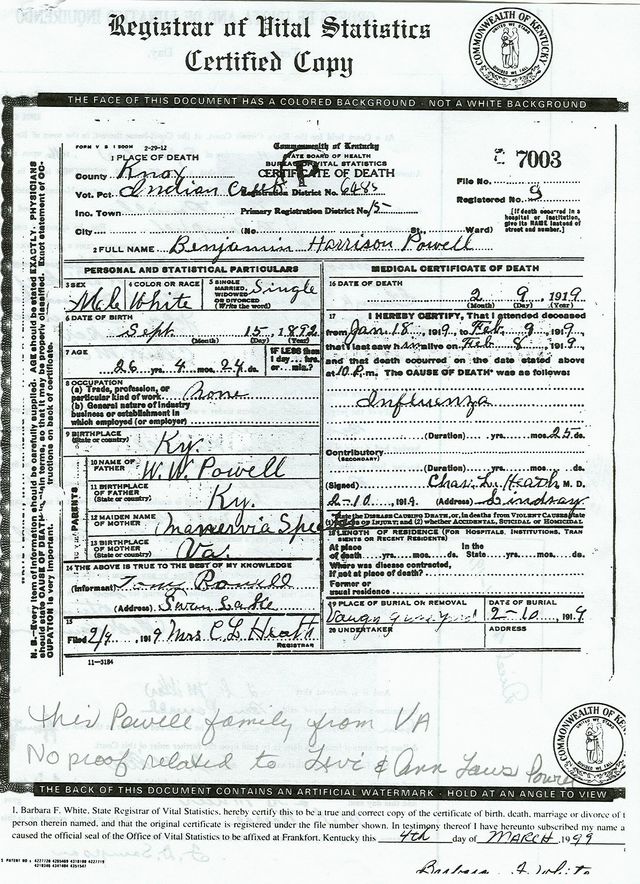 Registrar of Vital Statistics
Certified Copy
COMMONWEALTH OF KENTUCKY
THE FACE OF THIS DOCUMENT HAS A COLORED BACKGROUND - NOT A WHITE BACKGROUND
FORM V S 1 2-29-12
Commonwealth of Kentucky
STATE BOARD OF HEALTH
BUREAU OF VITAL STATISTICS
CERTIFICATE OF DEATH
1 PLACE OF DEATH
County Knox
Vot. Pct. Indian Creek Registration District No. 6485
Inc. Town Primary Registration District No. 15
City (No. St., Ward)
7003
File No.
Registered No. 9
[If death occurred in a hospital or institution, give its NAME instead of street and number.]
2 FULL NAME Benjamin Harrison Powell
PERSONAL AND STATISTICAL PARTICULARS
3 SEX Male
4 COLOR OR RACE White
5 SINGLE, MARRIED, WIDOWED OR DIVORCED (Write the word) Single
6 DATE OF BIRTH
Sept. 15, 1892
(Month) (Day) (Year)
7 AGE
26 yrs. 4 mos. 24 ds.
IF LESS than 1 day... hrs. or... min.?
8 OCCUPATION
(a) Trade, profession, or particular kind of work None
(b) General nature of industry business or establishment in which employed (or employer)
9 BIRTHPLACE (State or country) Ky.
PARENTS
10 NAME OF FATHER W. W. Powell
11 BIRTHPLACE OF FATHER (State or country) Ky.
12 MAIDEN NAME OF MOTHER
13 BIRTHPLACE OF MOTHER (State or country) Va.
14 THE ABOVE IS TRUE TO THE BEST OF MY KNOWLEDGE
(Informant) Powell
(Address) Swan Lake
15
Filed 2/9 1919 Mrs. C L Heath
REGISTRAR
11-3184
MEDICAL CERTIFICATE OF DEATH
16 DATE OF DEATH
2 9, 1919
(Month) (Day) (Year)
17 I HEREBY CERTIFY, That I attended deceased
from Jan. 18, 1919, to Feb. 9, 1919,
that I last saw him alive on Feb 8, 1919,
and that death occurred on the date stated above
at 10 P.m. The CAUSE OF DEATH* was as follows:
Influenza
(Duration) yrs. mos. 25 ds.
Contributory
(SECONDARY)
(Duration) yrs. mos. ds.
(Signed) Chas. L. Heath M. D.
2-10, 1919. (Address) Lindsay
*State the DISEASE CAUSING DEATH, or, in deaths from VIOLENT CAUSES state (1) MEANS OF INJURY; and (2) whether ACCIDENTAL, SUICIDAL or HOMICIDAL
18 LENGTH OF RESIDENCE (FOR HOSPITALS, INSTITUTIONS, TRANSIENTS OR RECENT RESIDENTS)
At place of death yrs. mos. ds. In the State yrs. mos. ds.
Where was disease contracted, if not at place of death?
Former or usual residence
19 PLACE OF BURIAL OR REMOVAL
DATE OF BURIAL 2-10, 1919
20 UNDERTAKER ADDRESS
this Powell family from VA
No proof related to Levi & Ann Laws Powell
COMMONWEALTH OF KENTUCKY
THE BACK OF THIS DOCUMENT CONTAINS AN ARTIFICIAL WATERMARK - HOLD AT AN ANGLE TO VIEW
I, Barbara F. White, State Registrar of Vital Statistics, hereby certify this to be a true and correct copy of the certificate of birth, death, marriage or divorce of t
person therein named, and that the original certificate is registered under the file number shown. In testimony thereof I have hereunto subscribed my name a
caused the official seal of the Office of Vital Statistics to be affixed at Frankfort, Kentucky this 4th day of MARCH 1999
Barbara F. White